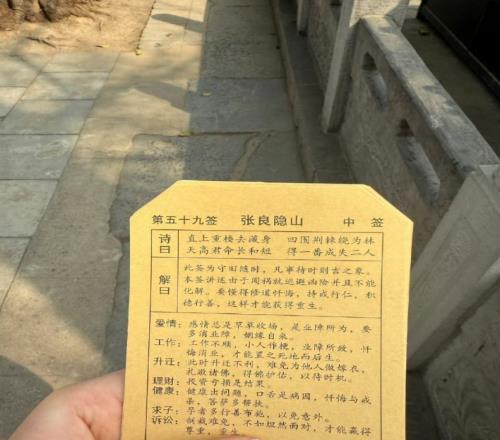 第五十九签 张良隐山 中签
诗曰
直上重楼去藏身 四围荆棘绕为林
天高君命长和短 得一番成失二人
解曰
此签为守旧随时，凡事待时则吉之象。
本签讲述由于周祸就近避凶险并且不能
化解。要懂得修道忏悔，持戒行仁，积
德行善，这样才能获得重生。
爱情：感情总是草草收场，是业障所为，要
多消业障，姻缘自来。
工作：工作不顺，小人作梗，业障所致，忏
悔消业，才能置之死地而后生。
升迁：此时升迁不利，难免为他人做嫁衣，
礼敬诸佛，得佛护估，以待时机。
理财：投资亏损是结果。
健康：健康出问题，口舌是病因，忏悔与戒
杀，菩萨多帮扶。
求子：孕者多行善布施，以免意外。
诉讼：制裁难免，不如坦然面对，才能赢得
尊重，重生